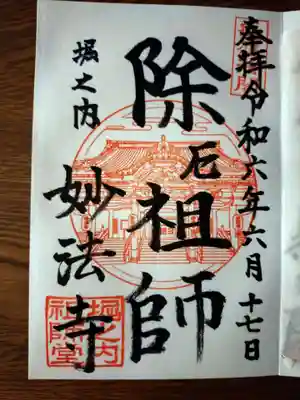 奉拝 令和六年六月十七日
除厄祖師
堀之内
妙法寺
堀之内
祖師堂